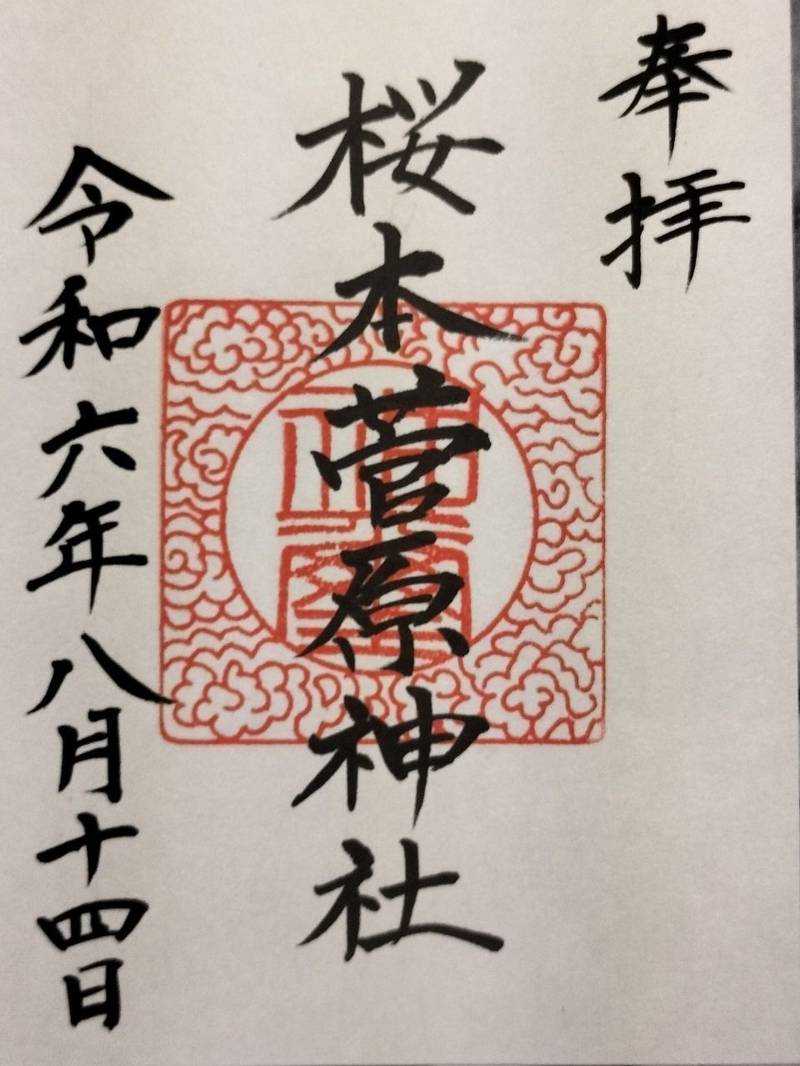 奉拝
桜本菅原神社
令和六年八月十四日